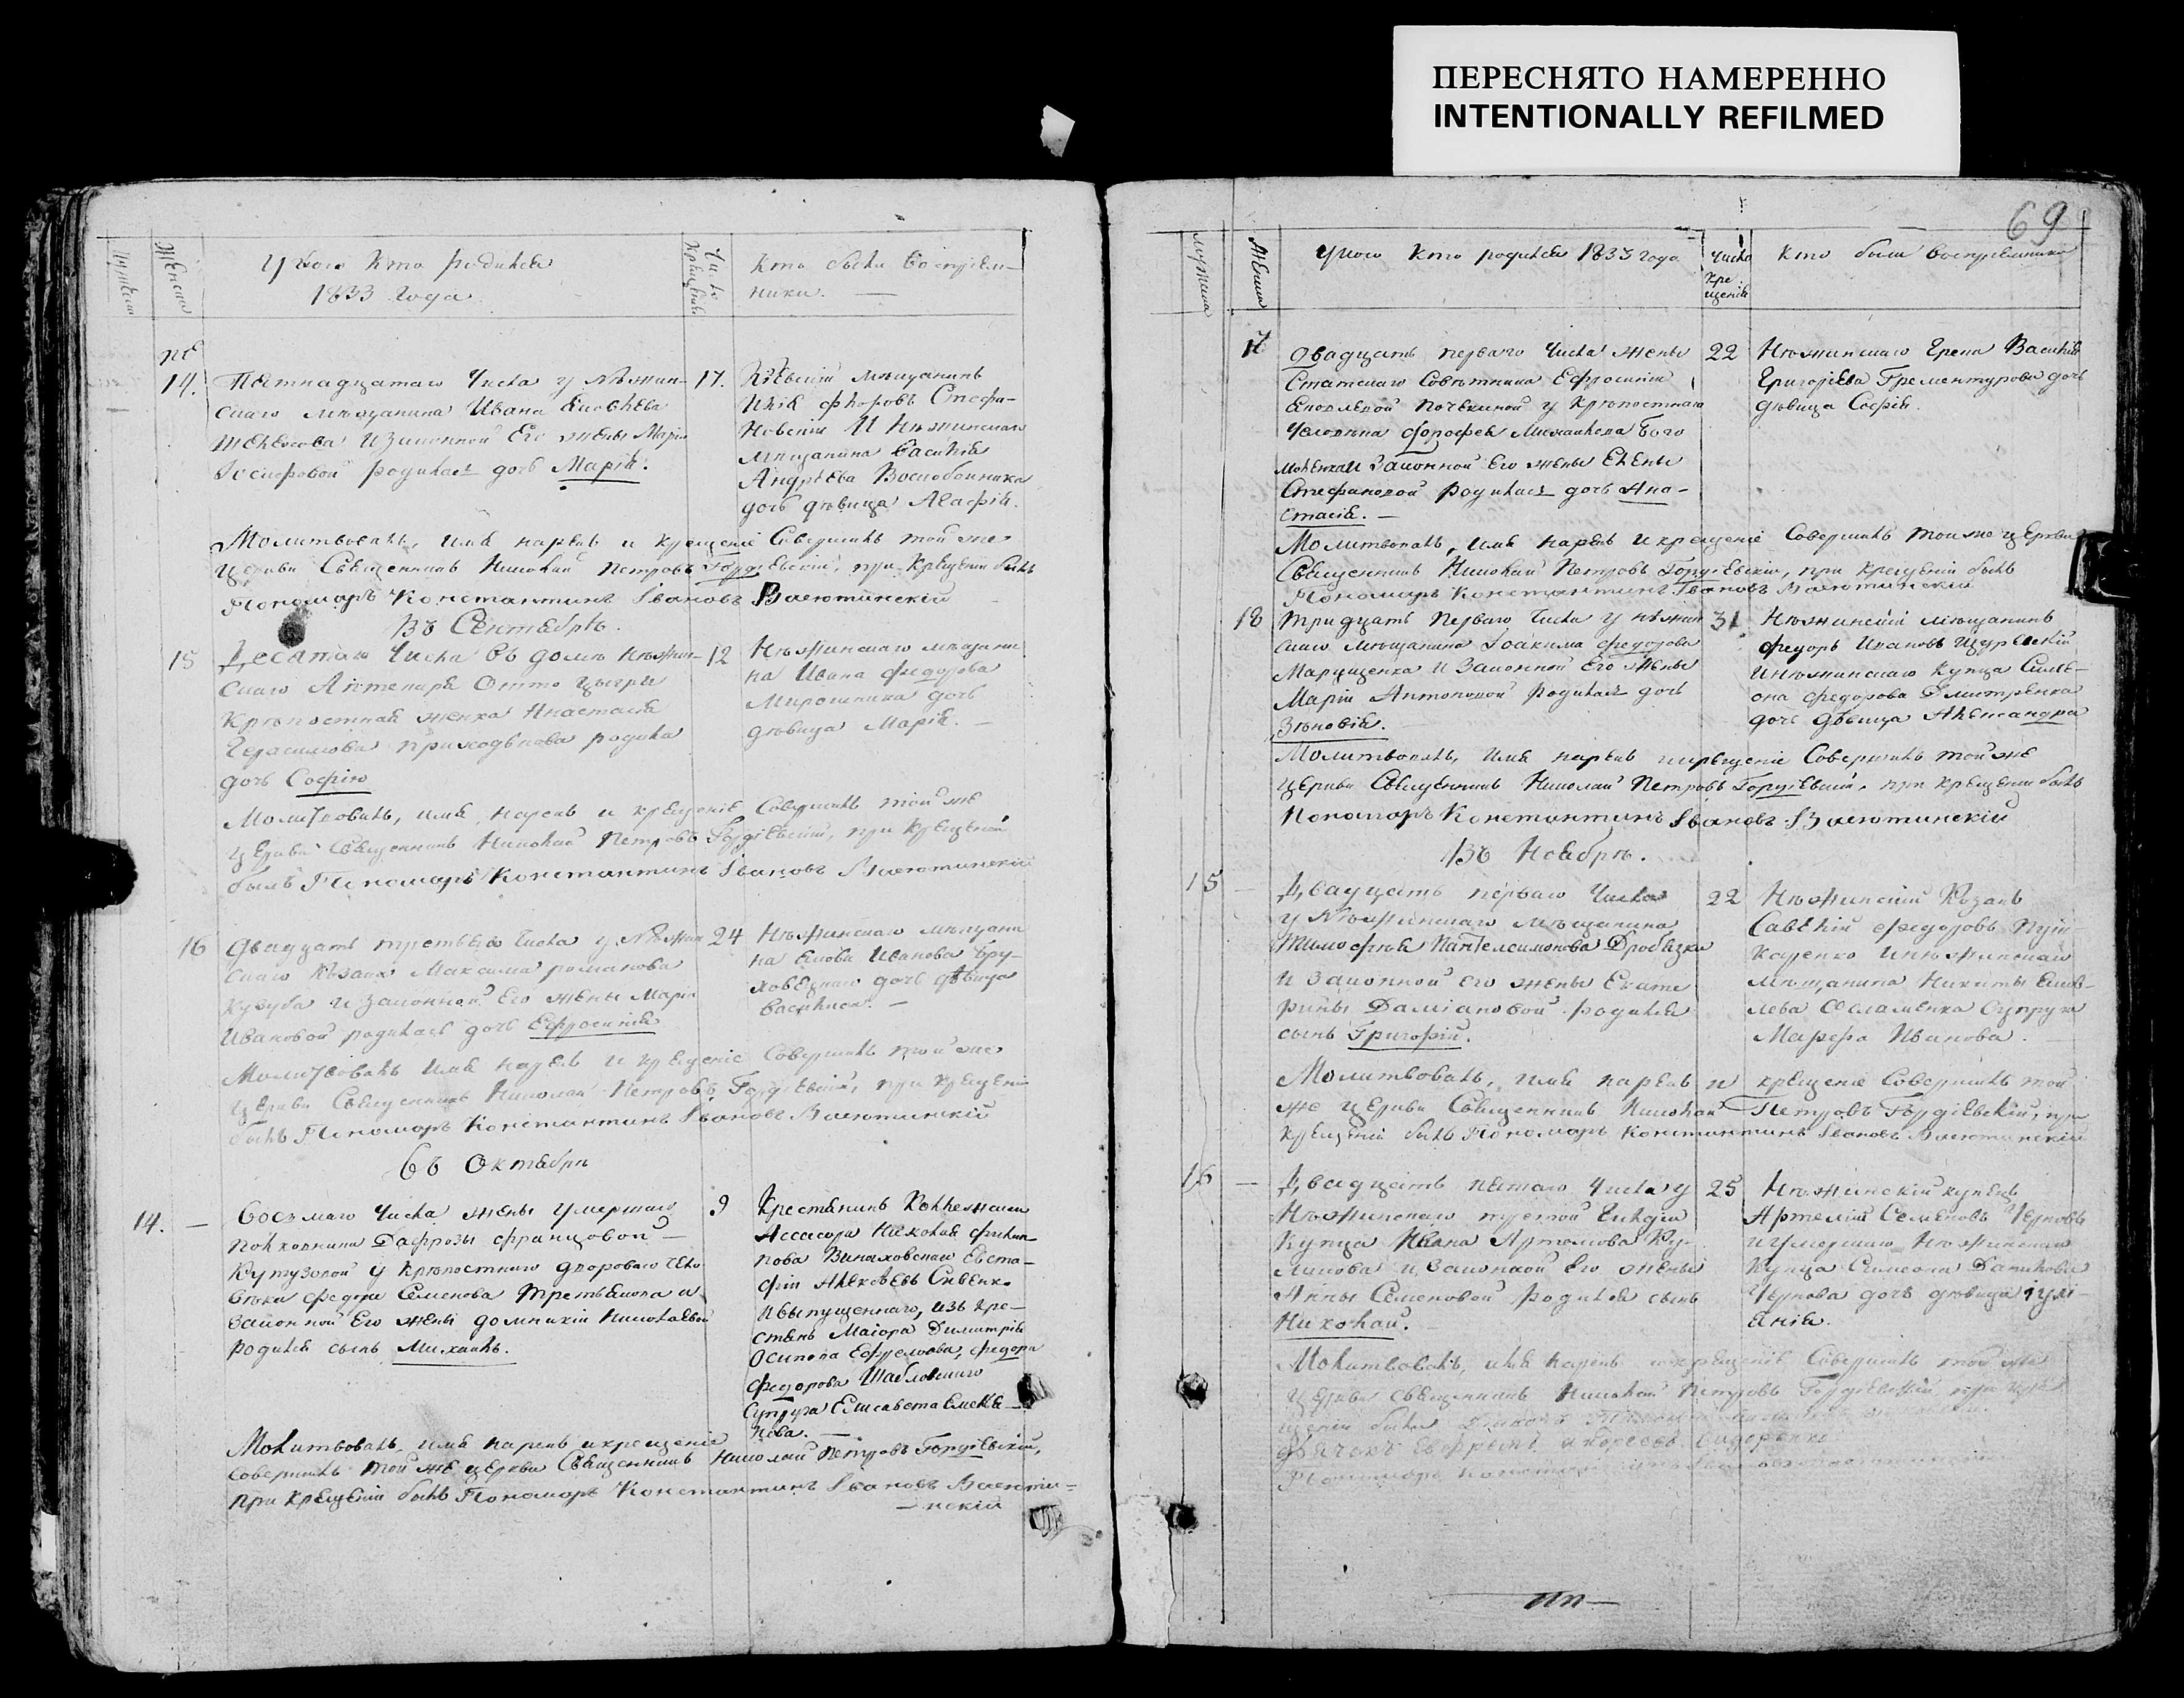 ПЕРЕСНЯТО НАМЕРЕННО
INTENTIONALLY REFILMED
69
Женска
У кого кто родился
1833 года
Число крещенія
Кто были воспріем-
ники.
14.
Пятнадцатаго числа у Нѣжин-
скаго мѣщанина Ивана Яковлева
и законной его жены Маріи
Іосифовой родилась дочь Марія.
17.
Кіевскій мѣщанинъ
и Нѣжинскаго
мѣщанина Василія
Андрѣева Воскобойника
дочь дѣвица Агафія.
Молитвовалъ, имя нарекъ и крещеніе совершилъ той же
церкви Священникъ Николай Петровъ Гордіевскій, при крещеніи былъ
Пономарь Константинъ Івановъ Васютинскій
Въ Сентябрѣ.
15
Десятаго числа въ домѣ Нѣжин-
скаго Аптекаря Отто Цыгры
крѣпостная женка Анастасія
Герасимова Приходькова родила
дочь Софію
12
Нѣжинскаго мѣщани
на Ивана Федорова
Мирошника дочь
дѣвица Марія.
Молитвовалъ, имя нарекъ и крещеніе совершилъ той же
церкви Священникъ Николай Петровъ Гордіевскій, при крещеніи
былъ Пономарь Константинъ Івановъ Васютинскій
16
Двадцать третьяго числа у Нѣжин
скаго Козака Максима Романова
Кугуба и законной его жены Маріи
Ивановой родилась дочь Ефросинія
24
Нѣжинскаго мѣщани
на Якова Иванова Бру-
ховецкаго дочь дѣвица
Василиса.
Молитвовалъ имя нарекъ и крещеніе совершилъ той же
церкви Священникъ Николай Петровъ Гордіевскій, при крещеніи
былъ Пономарь Константинъ Івановъ Васютинскій
въ Октябрѣ
14. —
Восьмаго числа жены умершаго
полковника Дафрозы Францовой
Кутузовой у крѣпостнаго двороваго чело
вѣка Федора Семенова Третьякова и
законной его жены Домникіи Николаевой
родился сынъ Михаилъ.
9
Крестянинъ Коллежскаго
Ассесора Николая Филип-
пова Винаховскаго Евста-
фій Алексѣевъ Сивенко
и выпущеннаго, изъ кре-
стянъ Маіора Димитрія
Осипова Ефремова, Федора
Федорова Шабловскаго
супруга Елисавета Емелья-
нова.
Молитвовалъ имя нарекъ и крещеніе
совершилъ той же церкви Священникъ Николай Петровъ Гордіевскій,
при крещеніи былъ Пономарь Константинъ Івановъ Васюти-
нскій
мужеска
Женска
У кого кто родился 1833 года
Число
кре
щенія
Кто были воспріемники
17
Двадцать перваго числа жены
Статскаго Совѣтника Ефросиніи
Яковлевой Почекиной у крѣпостнаго
человѣка Дорофея Михайлова Бого
моленка и законной его жены Елены
Стефановой родилась дочь Ана-
стасія.
22
Нѣжинскаго Грека Василія
Григорьева дочь
дѣвица Софія.
Молитвовалъ, имя нарекъ и крещеніе совершилъ той же церкви
Священникъ Николай Петровъ Гордіевскій, при крещеніи былъ
Пономарь Константинъ Івановъ Васютинскій
18
Тридцать перваго числа у Нѣжин
скаго мѣщанина Іоакима Федорова
Марущенка и законной его жены
Маріи Антоновой родилась дочь
Зѣновія.
31
Нѣжинскій мѣщанинъ
Федоръ Ивановъ Щуревскій
и Нѣжинскаго купца Симе-
она Федорова Дмитренка
дочь дѣвица Александра
Молитвовалъ, имя нарекъ и крещеніе совершилъ той же
церкви Священникъ Николай Петровъ Гордіевскій, при крещеніи былъ
Пономарь Константинъ Івановъ Васютинскій
Въ Ноябрѣ.
15 —
Двадцать перваго числа
у Нѣжинскаго мѣщанина
Тимофѣя Пантелеимонова Дробязки
и законной его жены Екате
рины Даміановой родился
сынъ Григорій.
22
Нѣжинскій Козакъ
Савелій Федоровъ Пуш-
каренко и Нѣжинскаго
мѣщанина Никиты Яков-
лева супруга
Марфа Иванова.
Молитвовалъ, имя нарекъ и крещеніе совершилъ той
же церкви Священникъ Николай Петровъ Гордіевскій, при
крещеніи былъ Пономарь Константинъ Івановъ Васютинскій
16 —
Двадцать пятаго числа у
Нѣжинскаго третьей гильдіи
купца Ивана Артемова Ку-
ликова и законной его жены
Анны Семеновой родился сынъ
Николай.
25
Нѣжинскій купецъ
Артемій Семеновъ Черновъ
и умершаго Нѣжинскаго
купца Симеона Данилова
Чернова дочь дѣвица Іулі-
анія.
Молитвовалъ, имя нарекъ и крещеніе совершилъ той же
церкви священникъ Николай Петровъ Гордіевскій при кре
щеніи были
Пономарь